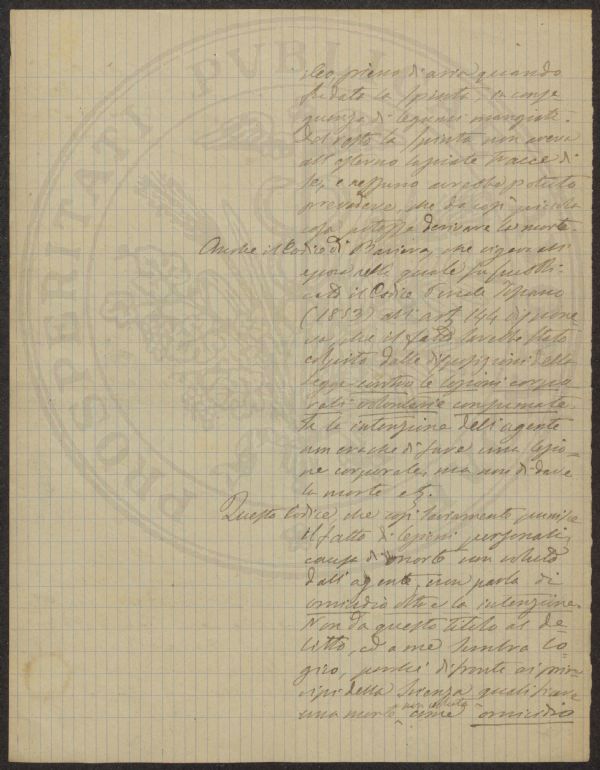 ileo, pieno di aria quando
fu data la spinta, in conse-
guenza di legumi mangiati.
Del resto la spinta non aveva
all'esterno lasciate tracce di
se, e nessuno avrebbe potuto
prevedere che da così piccola
cosa potesse derivare la morte.
Anche il Codice di Baviera, che vigeva all'
epoca nella quale fu pubbli-
cato il Codice Penale Toscano
(1853) all'art. 144 dispone-
va, che il fatto sarebbe stato
colpito dalle disposizioni della
legge contro le lesioni corpo-
rali volontarie consumate,
se la intenzione dell'agente
era anche di fare una lesio-
ne corporale, ma non di dare
la morte etc.
Questo Codice che così saviamente punisce
il fatto di lesioni personali,
causa di morte non voluta
dall'agente, non parla di
omicidio oltre la intenzione.
Non da questo titolo al de-
litto, ed a me sembra lo-
gico, perchè di fronte ai prin-
cipi della Scienza qualificare
una morte non voluta come omicidio
PROSPERITATI PVBLIC